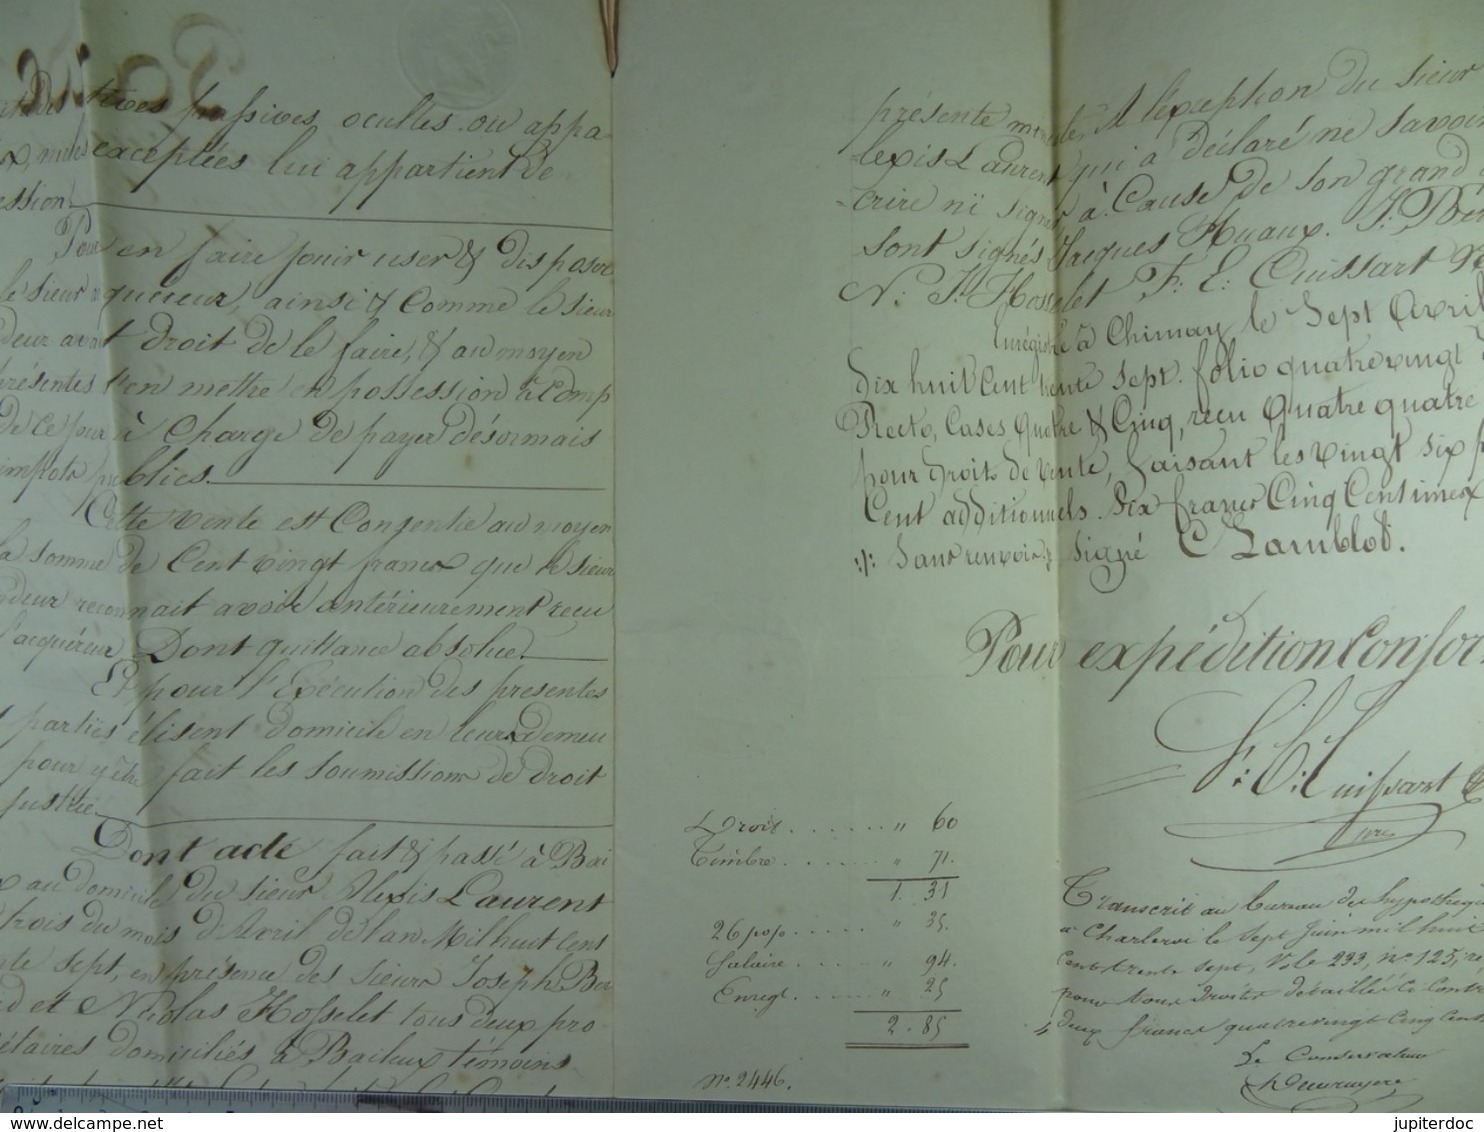 tives passives occultes ou appa-
exceptées lui appartient de
ession.
Pour en faire jouir user & disposer
le sieur acquéreur, ainsi & comme le sieur
deur avait droit de le faire, & au moyen
présentes l'en mettre en possession à comp
de ce jour à charge de payer désormais
impots publics.
Cette vente est consentie au moyen
la somme de Cent vingt francs que le sieur
deur reconnait avoir antérieurement recu
l'acquéreur Dont quittance absolue.
Et pour l'Exécution des presentes
parties élisent domicile en leurs demeu
pour y être fait les soumissions de droit
justice.
Dont acte fait & passé à Bai
x au domicile du sieur Alexis Laurent
trois du mois d'Avril de l'an Mil huit cent
nte sept, en présence des sieurs Joseph
et Nicolas Hosselet tous deux pro-
iétaires domiciliés à Baileux témoins
présente minute, A l'exception du sieur
lexis Laurent qui a déclaré ne savoir
-crire ni signer à Cause de son grand
sont signés Jacques Huaux. J:
N: J: Hosselet F: E: Cuissart
Enrégistré à Chimay le Sept Avril
dix huit Cent trente sept. folio quatre vingt
Recto, Cases Quatre & Cinq, recu Quatre quatre
pour droits de vente, faisant les vingt six
Cent additionnels. Dix francs Cinq Centimes
:/: Sans renvoi :/: signé C Lamblot.
Pour expédition Confor
F: E: Cuissart
Droit . . . . . . " 60
Timbre . . . . . . " 71.
1. 31
26 p%o . . . . . " 35.
Salaire . . . . . " 94.
Enregt. . . . . . " 25
2. 85
No. 2446.
Transcrit au bureau des hypothèque
à Charleroi le sept juin mil huit
cent trente sept, Vol. 233, no. 125, re
pour tous Droits détaillés Ci contre
deux francs quatre vingt Cinq Cent
Le Conservateur
jupiterdoc